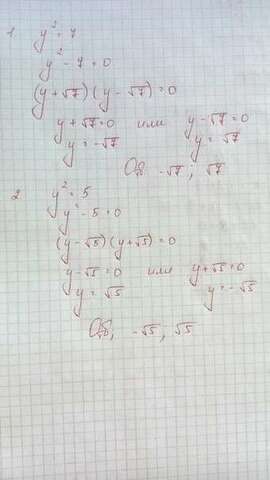 1 y² = 7
y² - 7 = 0
(y + √7)(y - √7) = 0
y + √7 = 0 или y - √7 = 0
y = -√7 y = √7
-√7; √7
2 y² = 5
y² - 5 = 0
(y - √5)(y + √5) = 0
y - √5 = 0 или y + √5 = 0
y = √5 y = -√5
-√5, √5